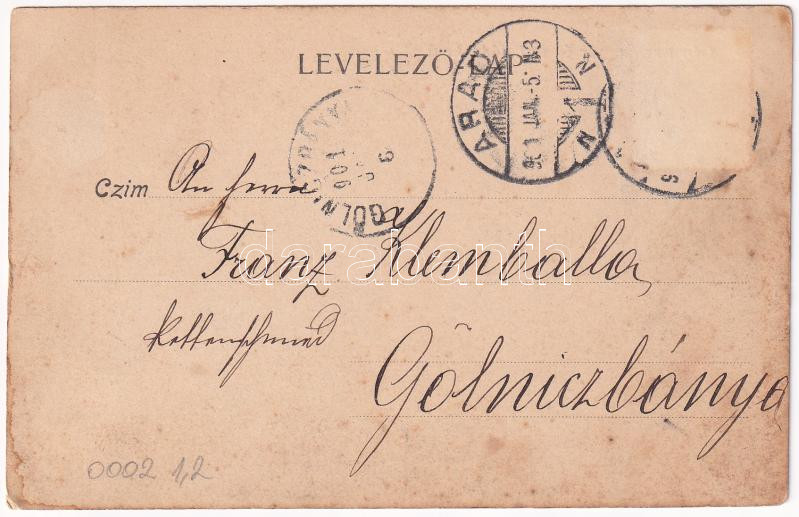 LEVELEZŐ-LAP
ARAD
901 JAN. 5 N3
GÖLNICZBÁNYA
901
Czim An Herrn
Franz Klemballa
Kettenschmied
Gölniczbánya
darabanth
0002 1,2